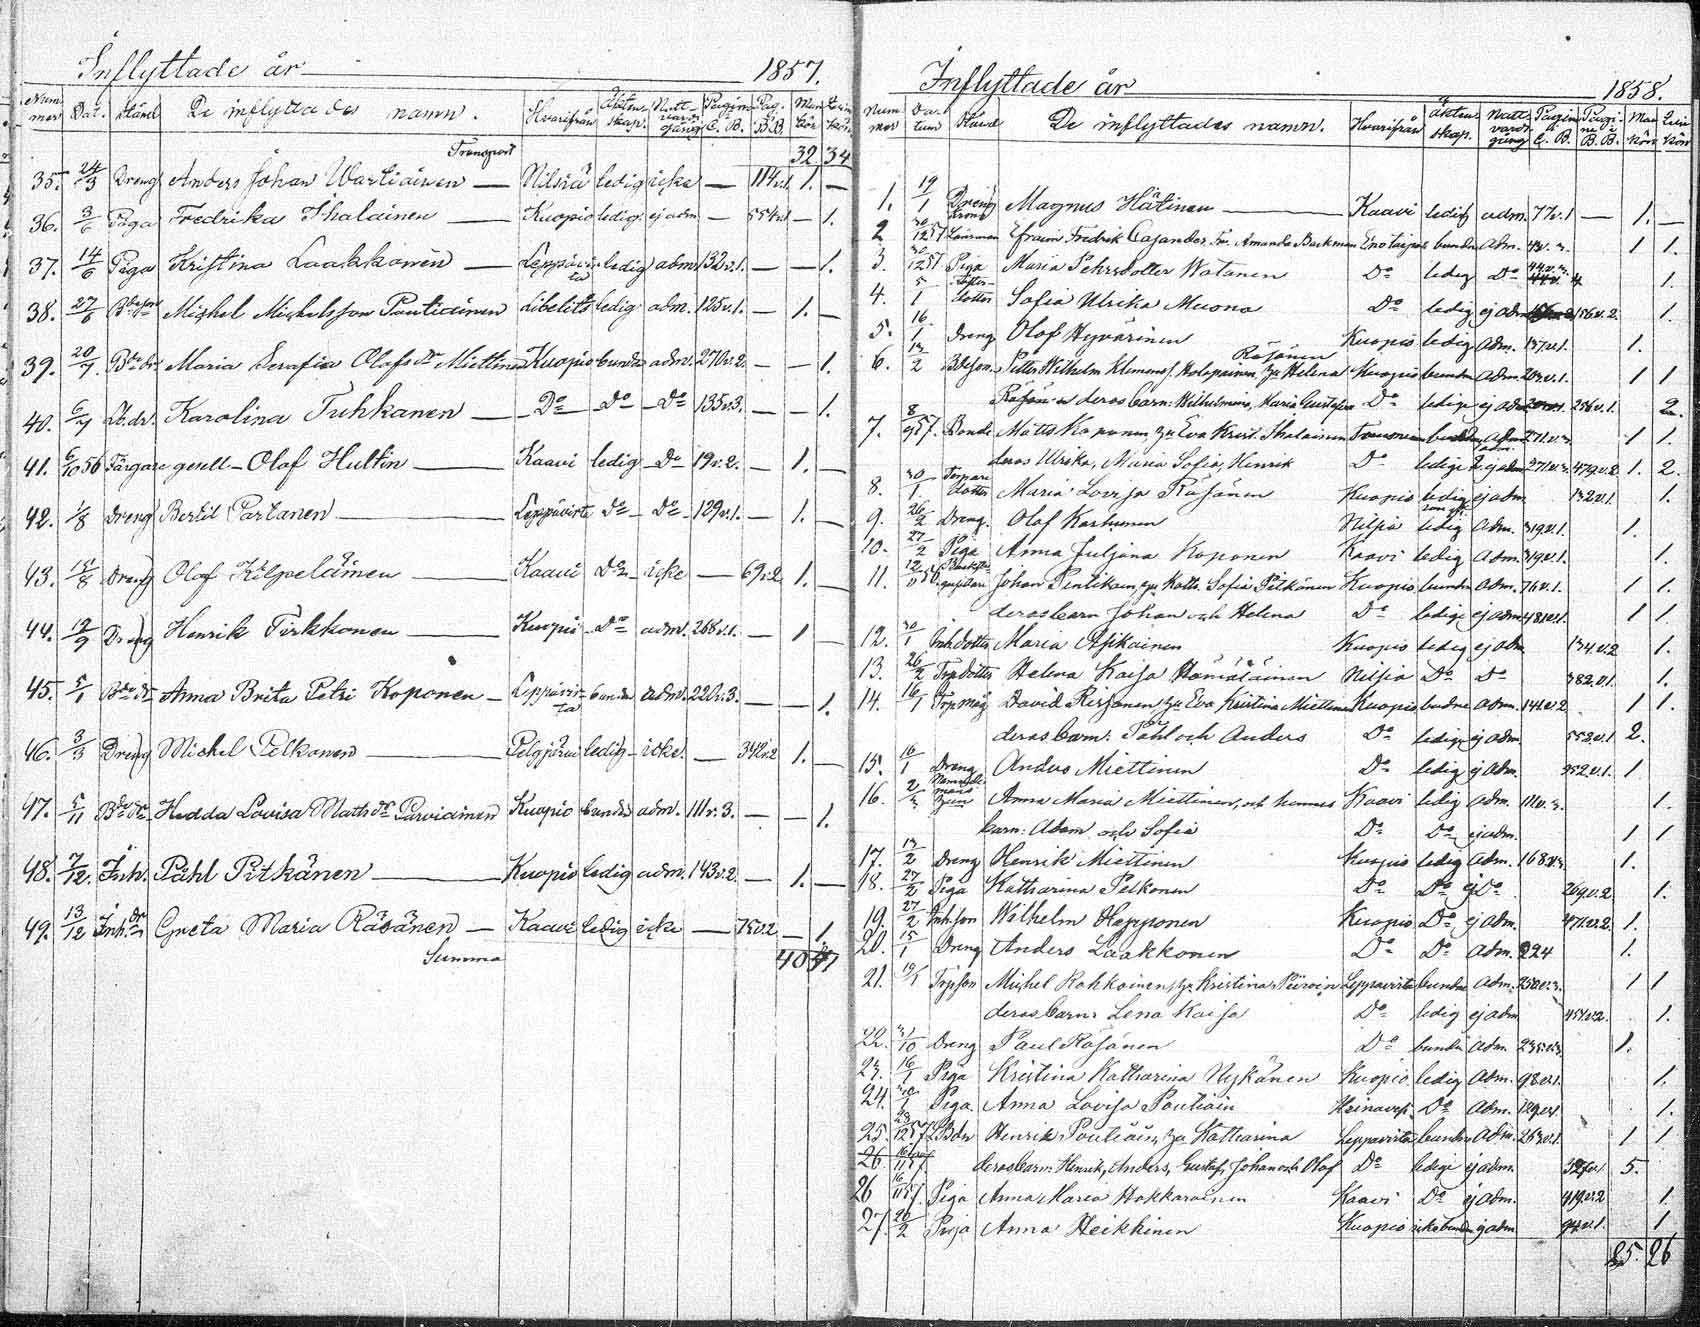 Inflyttade år 1857.
Nummer Dat. Stånd De inflyttades namn. Hvarifrån Äktenskap. Nattvardsgång Pagina C. B. Pag. B.B. Mankön Qvinkön
Transport 32 34
35. 24/3 Dreng Anders Johan Wartiainen Nilsiä ledig icke — 114.v.1. 1. —
36. 3/6 Piga Fredrika Ihalainen Kuopio ledig ej adm. — 554.v.1 — 1.
37. 14/6 Piga Kristina Laakkonen Leppävirta ledig adm. 132.v.1. — — 1.
38. 27/6 Bdeson Michel Michelsson Pontiainen Libelits ledig adm. 125.v.1. — 1. —
39. 20/7 Bdedr Maria Serafia Olofs dr Miettinen Kuopio bunden adm. 270.v.2. — — 1.
40. 6/7 Lb.dr. Karolina Tuhkanen Do Do Do 135.v.3. — — 1.
41. 6/10 56 Färgare gesell Olof Hultin Kaavi ledig Do 19.v.2. — 1. —
42. 1/8 Dreng Bertil Partanen Leppävirta Do Do 129.v.1. — 1. —
43. 15/8 Dreng Olof Kilpeläinen Kaavi Do icke — 69.v.2 1. —
44. 12/9 Dreng Henrik Tirkkonen Kuopio Do adm. 268.v.1. — 1 —
45. 5/1 Bde dr Anna Brita Petri Koponen Leppävirta bunden adm. 220.v.3. — — 1.
46. 3/3 Dreng Michel Pelkonen Pelgjärvi ledig icke. — 342.v.2 1. —
47. 5/11 Bde dr Hedda Lovisa Matts dr Parviainen Kuopio bunden adm. 111.v.3. — — 1.
48. 7/12. Inh. Påhl Pitkänen Kuopio ledig adm. 143.v.2. — 1. —
49. 13/12 Inh. dr Greta Maria Räsänen Kaavi ledig icke — 75.v.2 — 1.
Summa 40
Inflyttade år 1858.
Nummer Datum Stånd De inflyttades namn. Hvarifrån Äktenskap. Nattvardsgång Pagina C. B. Pagina B. B. Mankön Qvinkön
1. 19/1 Dreng Magnus Hätinen Kaavi ledig adm. 77.v.1 — 1. —
2 30/12 57 Krono Länsman Efraim Fredrik Cajander Fru Amanda Backman Enotaipal bunden adm. 1 1.
3. 30/12 57 Piga Maria Pehrsdotter Watanen Do ledig Do 1.
4. 5/1 dotter Sofia Ulrika Muona Do ledig ej adm. 156.v.2. 1.
5. 16/1 Dreng Olof Hyvärinen Kuopio ledig adm. 137.v.1. 1.
6. 13/2 Bdeson Petter Wilhelm Klemens s. Holopainen, hu Helena Räsänen Kuopio bunden adm. 203.v.1. 1 1
deras barn: Wilhelmina, Maria Gustafva Do ledige ej adm. 256.v.1. 2.
7. 8/9 57. Bonde Matts Koponen, hu Eva Krist. Ihalainen bunden adm. 271.v.3. 1 1
deras Ulrika, Maria Sofia, Henrik Do ledige 2 ej adm 271.v.3. 479.v.2 1. 2.
8. 30/1. Torpare dotter Maria Lovisa Räsänen Kuopio ledig ej adm 132.v.1. 1.
9. 26/2 Dreng. Olof Karhunen Nilsiä ledig adm. 319.v.1. 1.
10. 27/2 Piga Anna Juliana Koponen Kaavi ledig adm. 319.v.1. 1.
11. Johan Pentikäin, hu Kath. Sofia Pitkänen Kuopio bunden adm. 76.v.1. 1 1.
deras barn Johan och Helena Do ledige ej adm. 481.v.1. 1 1
12. 30/1 Inh.dotter Maria Asikainen Kuopio ledig ej adm 134.v.2 1.
13. 26/2 Trpdotter Helena Kaisa Hämäläinen Nilsiä Do Do 382.v.1. 1.
14. 16/1 Trp måg David Reisjanen, hu Eva Kristina Miettinen Kuopio bundne adm. 141.v.2 1 1.
deras barn: Påhl och Anders Do ledige ej adm. 553.v.1 2.
15. 16/1 Dreng Anders Miettinen Do ledig ej adm. 352.v.1. 1
16. 2/3 Anna Maria Miettinen, och hennes Kaavi ledig adm. 111.v.3. 1.
barn: Adam och Sofia Do Do ej adm. 1 1
17. 13/2 Dreng Henrik Miettinen Kuopio ledig adm. 168.v.3. 1.
18. 27/2 Piga Katharina Pelkonen Do Do ej Do 269.v.2. 1.
19. 27/2 Inhson Wilhelm Happonen Kuopio Do ej adm. 471.v.2. 1.
20. 15/1 Dreng Anders Laakkonen Do Do adm. 224 1.
21. 19/1 Trpson Michel Rahkoinen, hu Kristina Piiroin Leppävirta bundne adm. 250.v.3. 1 1
deras barn: Lena Kaisa Do ledig ej adm 454.v.2. 1.
22. 31/10 Dreng Paul Räsänen Do bunden adm. 235.v.3. 1.
23. 16/1 Piga Kristina Katharina Nykänen Kuopio ledig adm. 98.v.1. 1.
24. 30/1 Piga Anna Lovisa Poutiäin Heinävesi Do adm. 129.v.1. 1.
25. 23/12 57 LBdr Henrik Poutiäin, hu Katharina Leppävirta bundne adm. 263.v.1. 1 1
26. 16/11 57 deras barn: Henrik, Anders, Gustaf, Johan och Olof Do ledige ej adm. 327.v.1 5.
26 16/11 57. Piga Anna Maria Hakkarainen Kaavi Do ej adm. 419.v.2 1.
27. 20/2 Piga Anna Heikkinen Kuopio icke bunden ej adm. 94.v.1. 1
25. 26